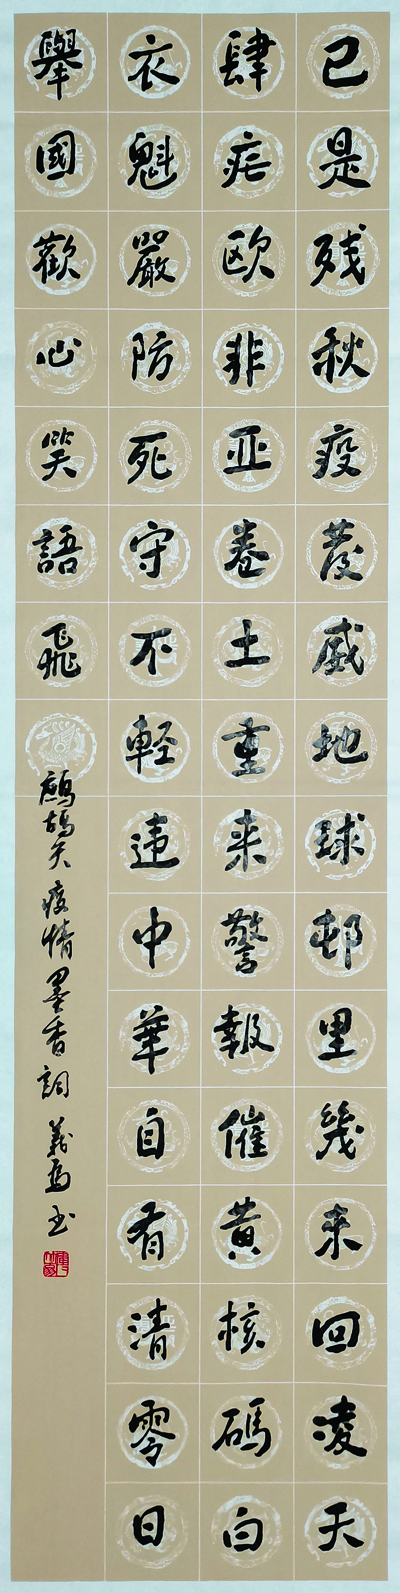 已是残秋疫發威地球邨里幾来回凌天
肆疟欧非亚卷土重来警報催黄核碼白
衣魁嚴防死守不輕違中華自有清零日
舉國歡心笑語飛
鷓鴣天 疫情 墨香詞 義 书